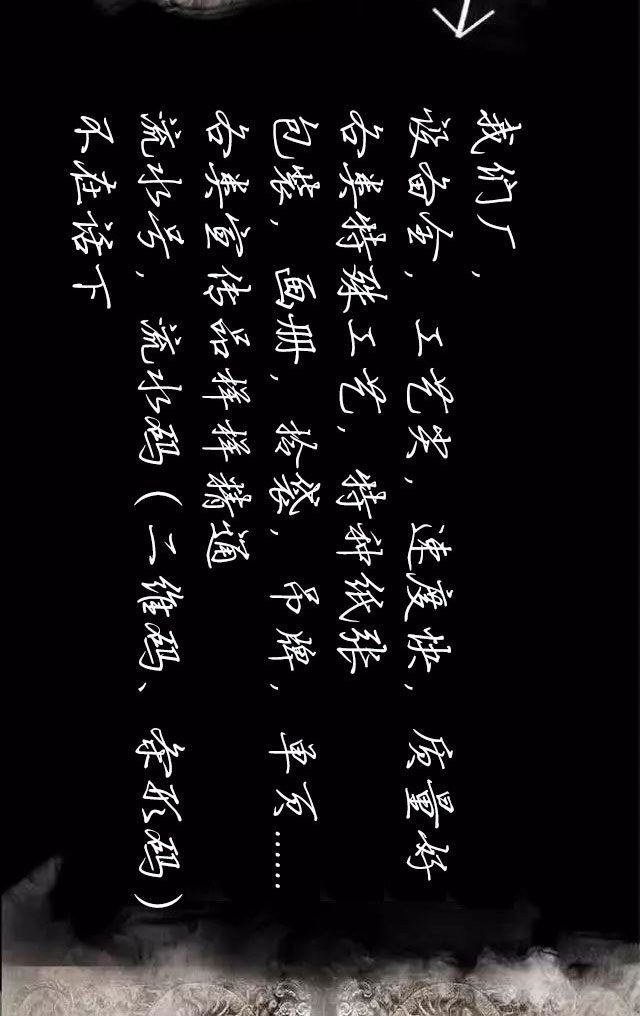 我们厂，
设备全，工艺尖，速度快，质量好
各类特殊工艺，特种纸张
包装，画册，拎袋，吊牌，单页……
各类宣传品样样精通
流水号，流水码（二维码、条形码）
不在话下